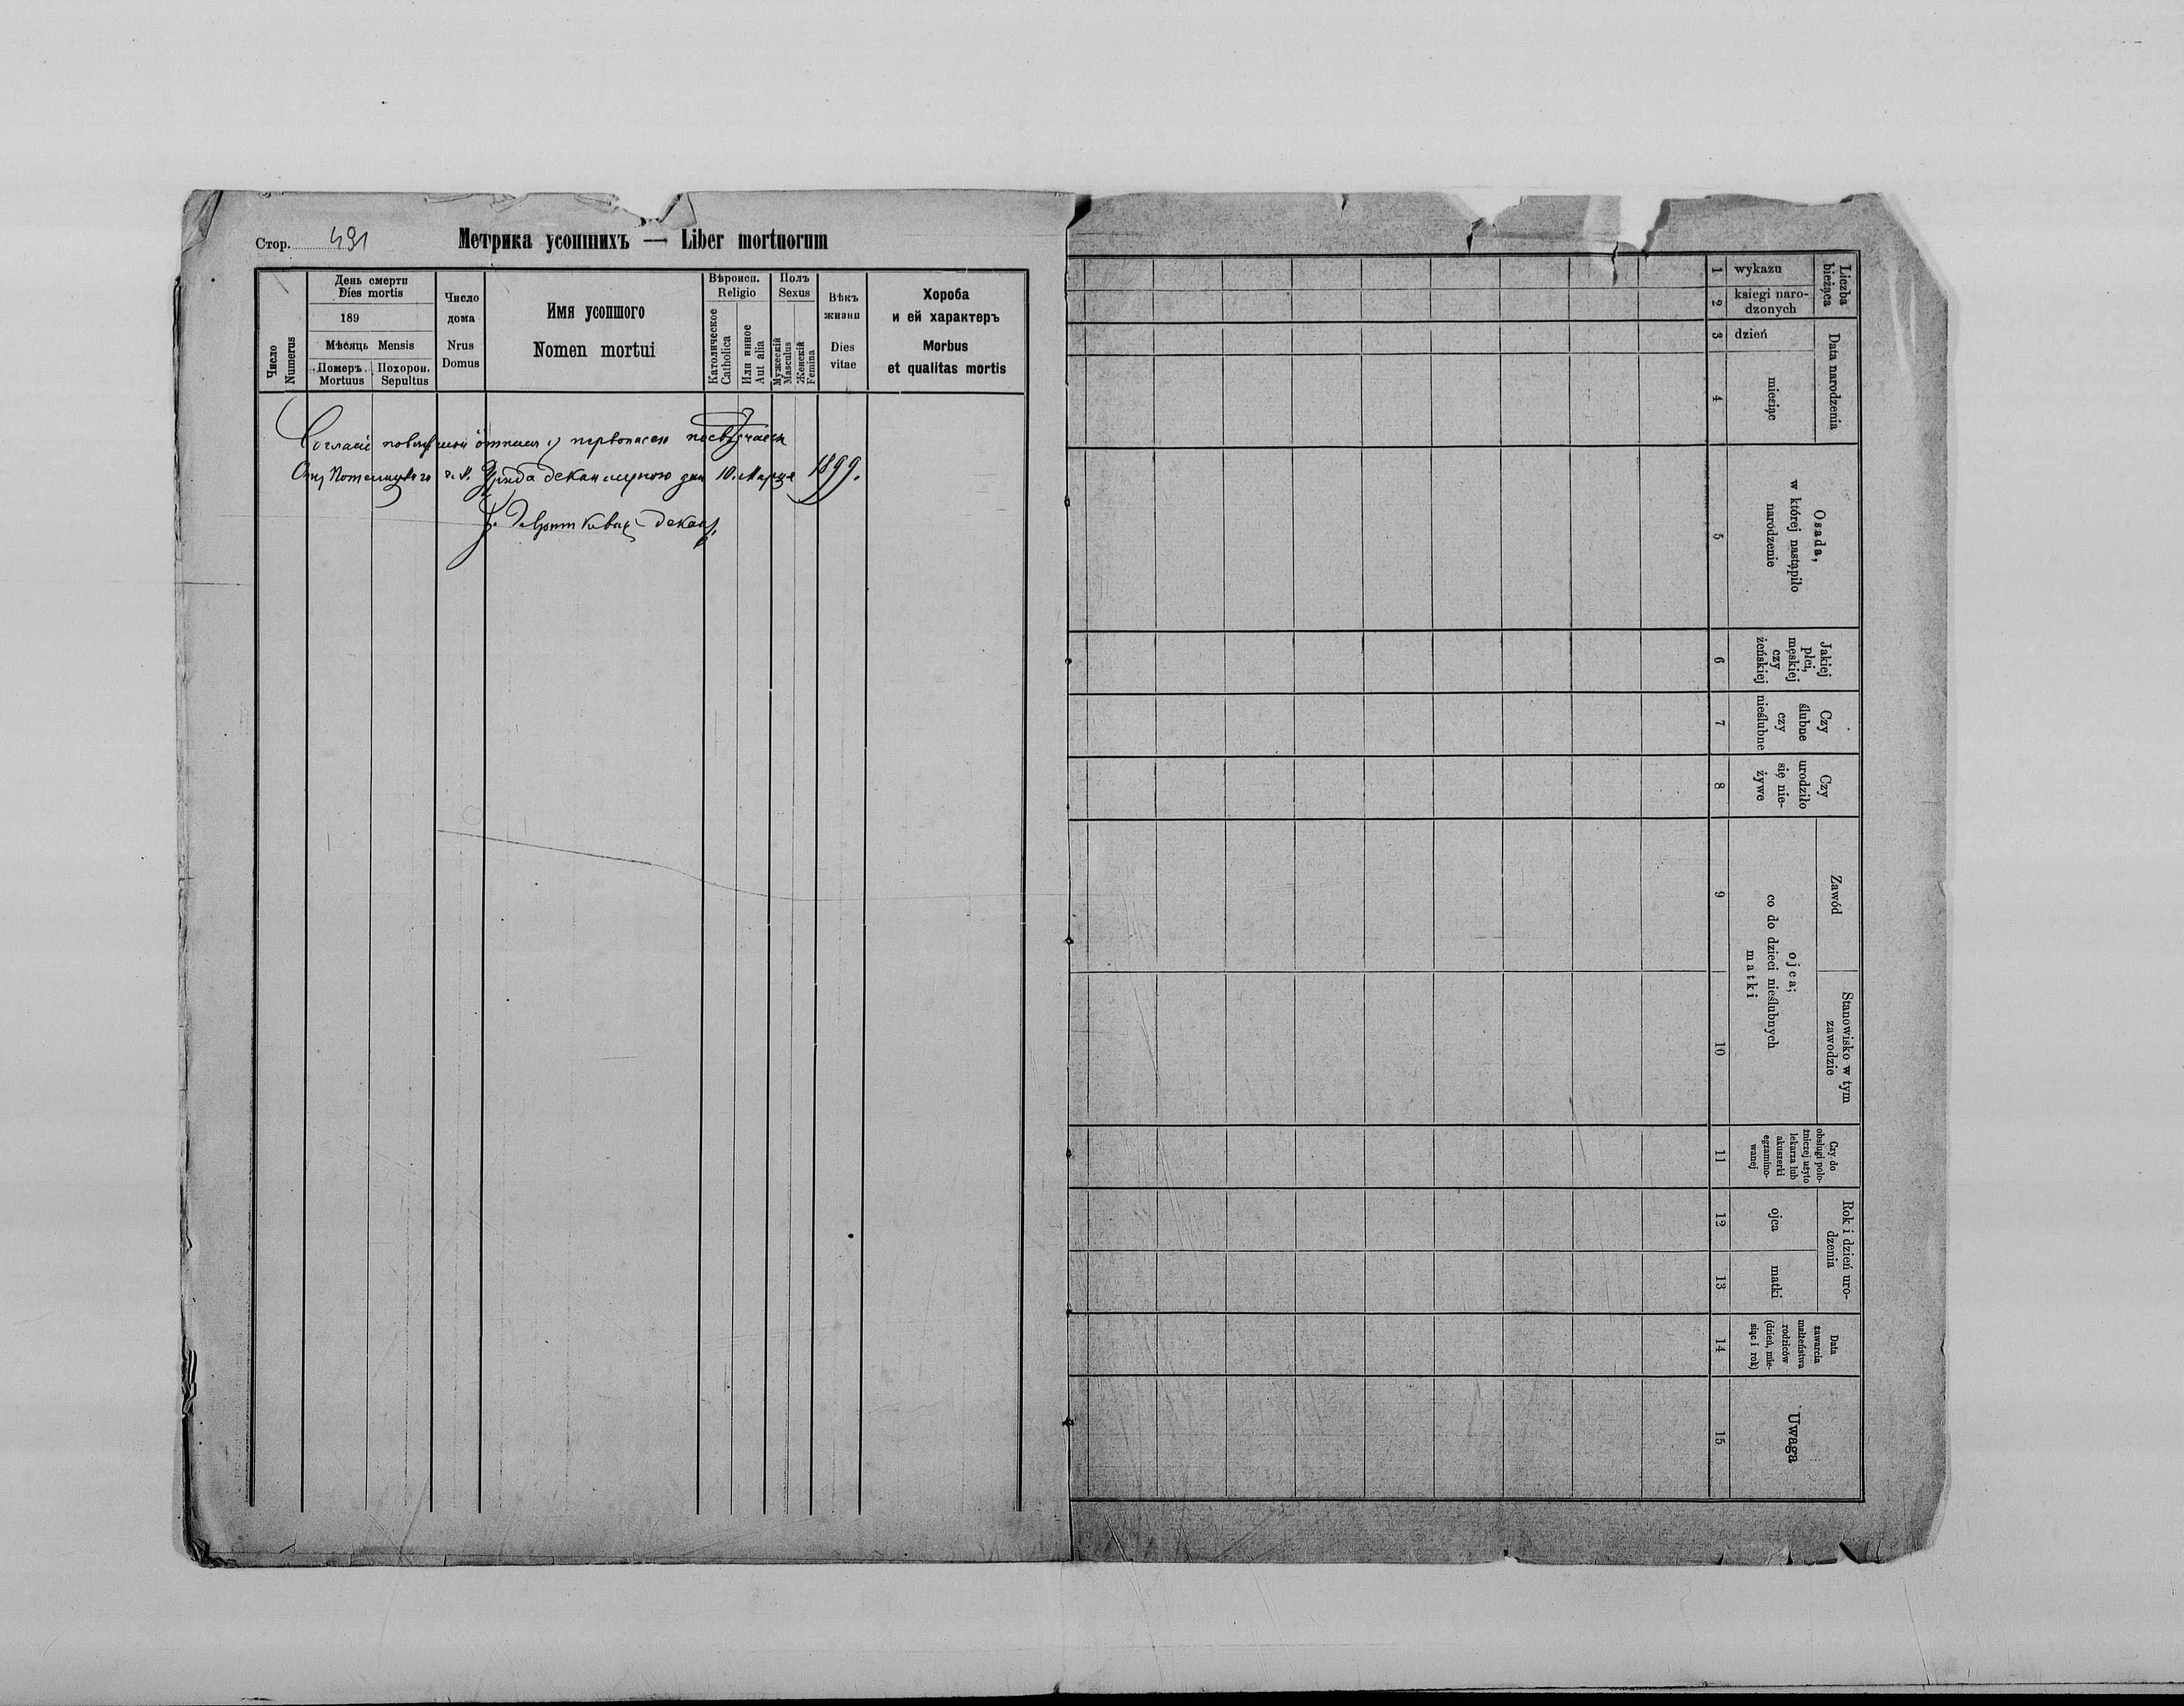 Стор. 491
Метрика усопшихъ — Liber mortuorum
Число
Numerus
День смерти
Dies mortis
189
Мѣсяць Mensis
Померъ. Mortuus
Похорон. Sepultus
Число
дома
Nrus
Domus
Имя усопшого
Nomen mortui
Вѣроисп.
Religio
Католическое
Catholica
Или инное
Aut alia
Полъ
Sexus
Мужескій
Masculus
Женскій
Femina
Вѣкъ
жизни
Dies
vitae
Хороба
и ей характеръ
Morbus
et qualitas mortis
Согласіе
10. Марця 1899.
декан
Liczba
bieżąca
1 wykazu
2 księgi naro-
dzonych
Data narodzenia
3 dzień
4 miesiąc
Osada,
w której nastąpiło
narodzenie
5
Jakiej
płci,
męskiej
czy
żeńskiej
6
Czy
ślubne
czy
nieślubne
7
Czy
urodziło
się nie-
żywe
8
Zawód
Stanowisko w tym
zawodzie
ojca;
co do dzieci nieślubnych
matki
9
10
Czy do
obsługi poło-
żniczej użyto
lekarza lub
akuszerki
egzamino-
wanej
11
Rok i dzień uro-
dzenia
ojca
12
matki
13
Data
zawarcia
małżeństwa
rodziców
(dzień, mie-
siąc i rok)
14
Uwaga
15